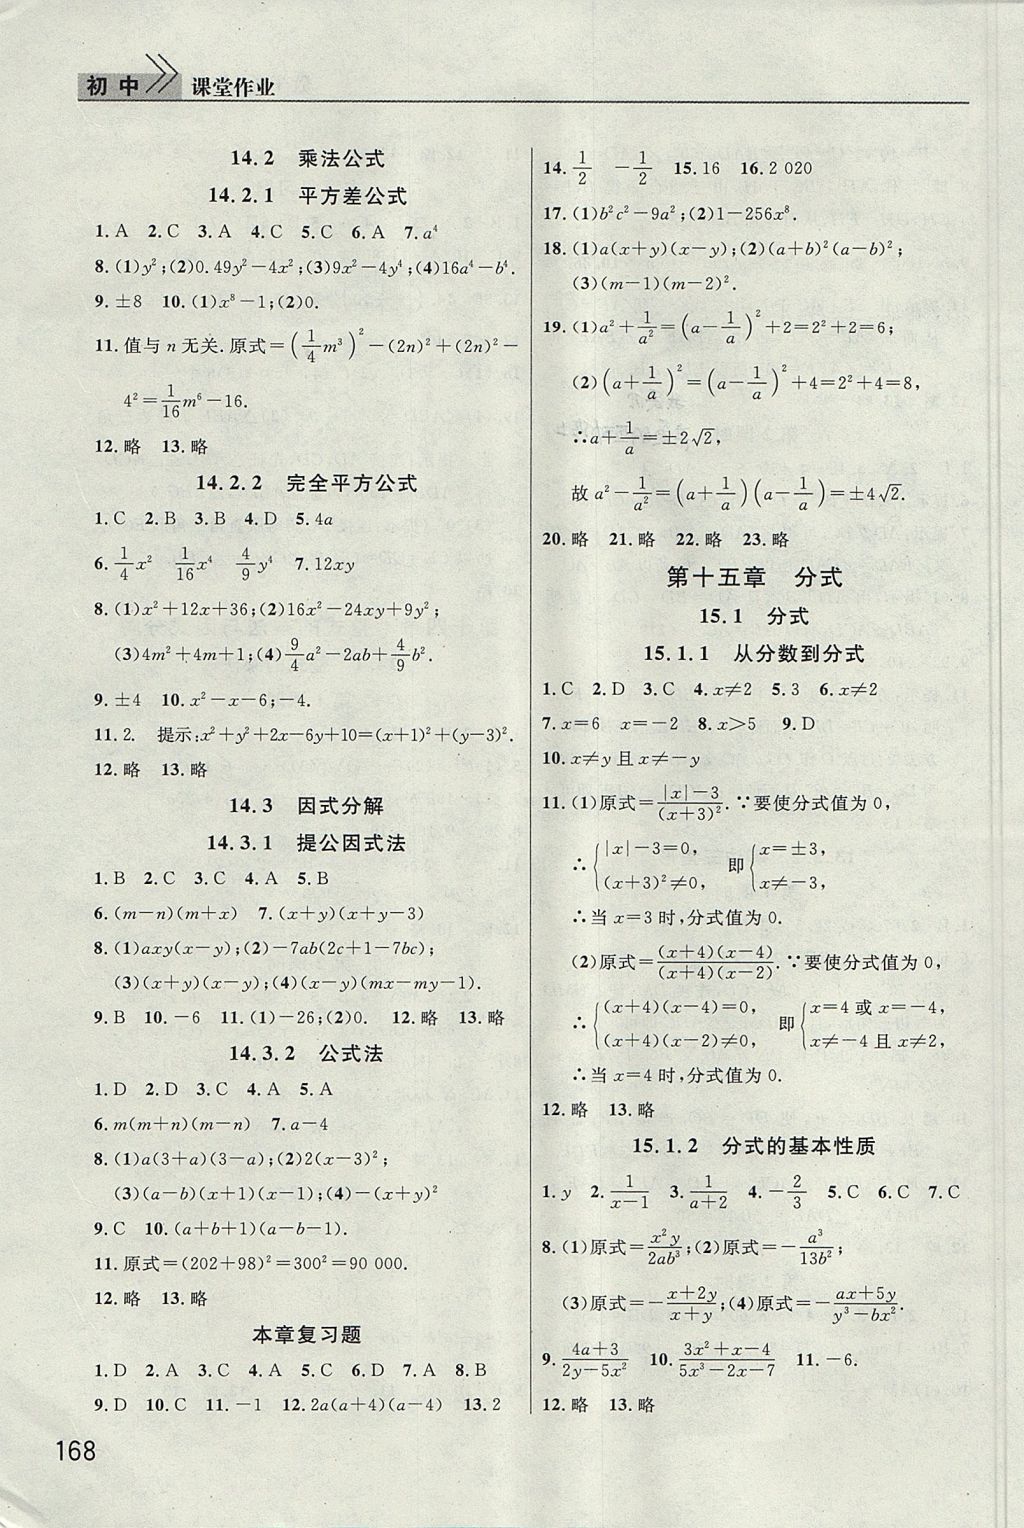 初中 课堂作业
14.2 乘法公式
14.2.1 平方差公式
1.A 2.C 3.A 4.C 5.C 6.A 7.a⁴
8.(1)y²;(2)0.49y²-4x²;(3)9x²-4y⁴;(4)16a⁴-b⁴.
9.±8 10.(1)x⁸-1;(2)0.
11.值与n无关.原式=(1/4m³)²-(2n)²+(2n)²-
4²=1/16m⁶-16.
12.略 13.略
14.2.2 完全平方公式
1.C 2.B 3.B 4.D 5.4a
6.1/4x² 1/16x⁴ 4/9y⁴ 7.12xy
8.(1)x²+12x+36;(2)16x²-24xy+9y²;
(3)4m²+4m+1;(4)9/4a²-2ab+4/9b².
9.±4 10.x²-x-6;-4.
11.2. 提示:x²+y²+2x-6y+10=(x+1)²+(y-3)².
12.略 13.略
14.3 因式分解
14.3.1 提公因式法
1.B 2.C 3.C 4.A 5.B
6.(m-n)(m+x) 7.(x+y)(x+y-3)
8.(1)axy(x-y);(2)-7ab(2c+1-7bc);
(3)(x+y)(x-y);(4)(x-y)(mx-my-1).
9.B 10.-6 11.(1)-26;(2)0. 12.略 13.略
14.3.2 公式法
1.D 2.D 3.C 4.A 5.A
6.m(m+n)(m-n) 7.a-4
8.(1)a(3+a)(3-a);(2)2(x-3)²;
(3)(a-b)(x+1)(x-1);(4)-(x+y)²
9.C 10.(a+b+1)(a-b-1).
11.原式=(202+98)²=300²=90 000.
12.略 13.略
本章复习题
1.D 2.A 3.C 4.A 5.C 6.D 7.A 8.B
9.D 10.C 11.-1 12.2a(a+4)(a-4) 13.2
14.1/2 -1/2 15.16 16.2 020
17.(1)b²c²-9a²;(2)1-256x⁸.
18.(1)a(x+y)(x-y);(2)(a+b)²(a-b)²;
(3)(m-1)(m-2)².
19.(1)a²+1/a²=(a-1/a)²+2=2²+2=6;
(2)(a+1/a)²=(a-1/a)²+4=2²+4=8,
∴a+1/a=±2√2,
故a²-1/a²=(a+1/a)(a-1/a)=±4√2.
20.略 21.略 22.略 23.略
第十五章 分式
15.1 分式
15.1.1 从分数到分式
1.C 2.D 3.C 4.x≠2 5.3 6.x≠2
7.x=6 x=-2 8.x>5 9.D
10.x≠y且x≠-y
11.(1)原式=(|x|-3)/(x+3)².∵要使分式值为0,
∴{|x|-3=0, (x+3)²≠0, 即{x=±3, x≠-3,
∴当x=3时,分式值为0.
(2)原式=(x+4)(x-4)/(x+4)(x-2).∵要使分式值为0,
∴{(x+4)(x-4)=0, (x+4)(x-2)≠0, 即{x=4或x=-4, x≠-4且x≠2,
∴当x=4时,分式值为0.
12.略 13.略
15.1.2 分式的基本性质
1.y 2.1/(x-1) 3.1/(a+2) 4.-2/3 5.C 6.C 7.C
8.(1)原式=x²y/2ab³;(2)原式=-a³/13b²;
(3)原式=-(x+2y)/(x+y);(4)原式=-(ax+5y)/(y³-bx²).
9.(4a+3)/(2y-5x²) 10.(3x²+x-4)/(5x³-2x-7) 11.-6.
12.略 13.略
168